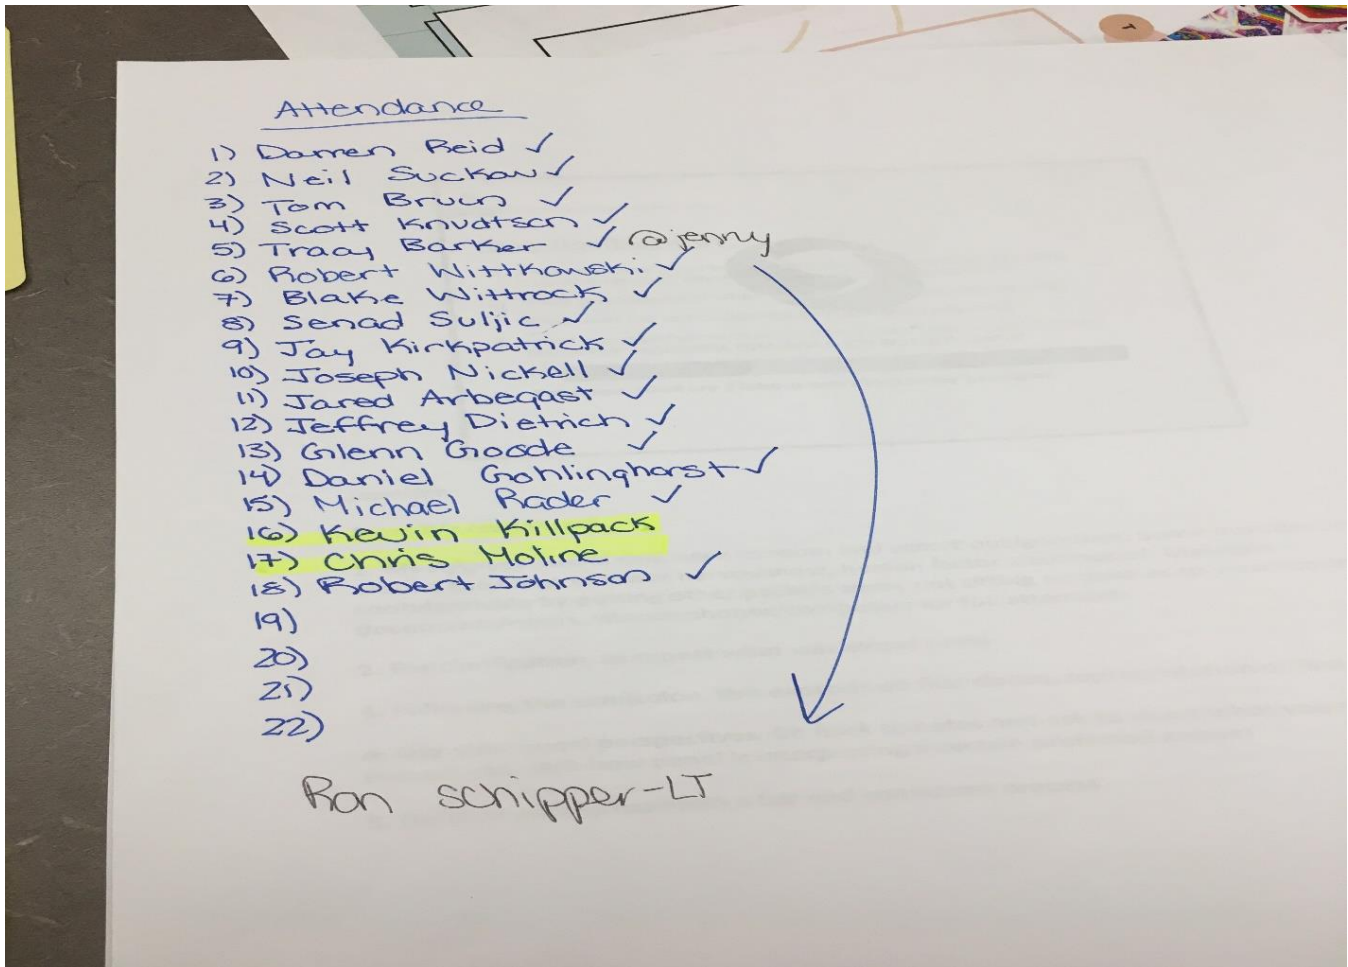 Attendance
1) Darren Reid ✓
2) Neil Suckow ✓
3) Tom Bruun ✓
4) Scott Knudtson ✓
5) Tracy Barker ✓ @jenny
6) Robert Wittkowski ✓
7) Blake Wittrock ✓
8) Senad Suljic ✓
9) Jay Kirkpatrick ✓
10) Joseph Nickell ✓
11) Jared Arbegast ✓
12) Jeffrey Dietrich ✓
13) Glenn Goode ✓
14) Daniel Gohlinghorst ✓
15) Michael Rader ✓
16) Kevin Killpack
17) Chris Moline
18) Robert Johnson ✓
19)
20)
21)
22)
Ron Schipper-LT